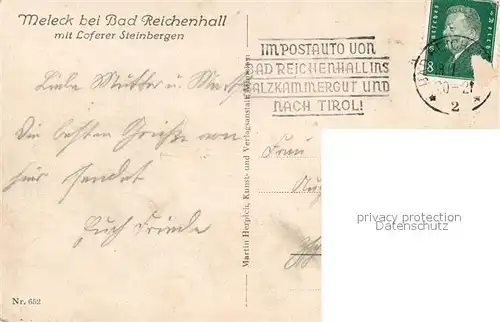 Meleck bei Bad Reichenhall
mit Loferer Steinbergen
IM POSTAUTO VON
BAD REICHENHALL INS
SALZKAMMERGUT UND
NACH TIROL!
8
2
Liebe Mutter u
Die besten Grüße von
hier sendet
Euch Friede
Martin Herpich, Kunst- und Verlagsanstalt, München
Frau
privacy protection
Datenschutz
Nr. 652